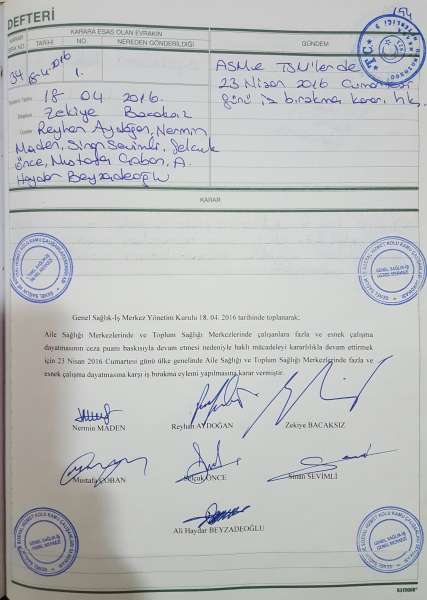 DEFTERİ
KARAR
SIRA NO
KARARA ESAS OLAN EVRAKIN
TARİHİ
NO
NEREDEN GÖNDERİLDİĞİ
GÜNDEM
34
18-4-2016
1.
18 04 2016.
Zekiye Bacaksız
Reyhan Aydoğan, Nermin
Maden, Sinan Sevimli, Selçuk
Önce, Mustafa Çoban, A.
Haydar Beyzadeoğlu
ASM ve TSM'lerde
23 Nisan 2016 Cumartesi
günü iş bırakma kararı hk.
T.C.
KARAR
GENEL SAĞLIK-İŞ
GENEL MERKEZİ
Genel Sağlık-İş Merkez Yönetim Kurulu 18. 04. 2016 tarihinde toplanarak;
Aile Sağlığı Merkezlerinde ve Toplum Sağlığı Merkezlerinde çalışanlara fazla ve esnek çalışma
dayatmasının ceza puanı baskısıyla devam etmesi nedeniyle haklı mücadeleyi kararlılıkla devam ettirmek
için 23 Nisan 2016 Cumartesi günü ülke genelinde Aile Sağlığı ve Toplum Sağlığı Merkezlerinde fazla ve
esnek çalışma dayatmasına karşı iş bırakma eylemi yapılmasına karar vermiştir.
Nermin MADEN
Reyhan AYDOĞAN
Zekiye BACAKSIZ
Mustafa ÇOBAN
Selçuk ÖNCE
Sinan SEVİMLİ
Ali Haydar BEYZADEOĞLU
GENEL SAĞLIK-İŞ
GENEL MERKEZİ